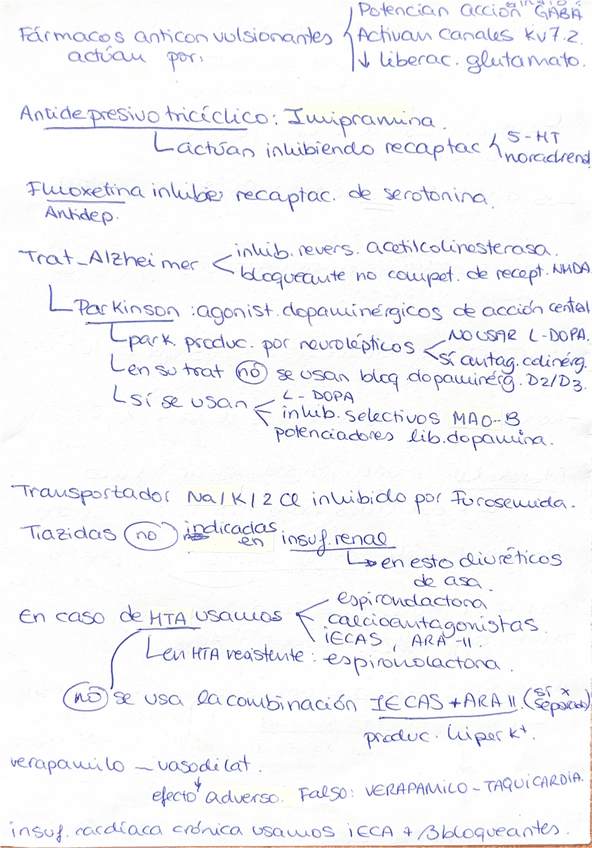 Potencian acción GABA
Fármacos anticonvulsionantes Activan canales Kv7.2.
actúan por: ↓ liberac. glutamato.
Antidepresivo tricíclico: Imipramina.
actúan inhibiendo recaptac 5-HT
noradrenal
Fluoxetina inhibe recaptac. de serotonina.
Antidep.
Trat-Alzheimer inhib. revers. acetilcolinesterasa.
bloqueante no compet. de recept. NMDA
Parkinson: agonist. dopaminérgicos de acción central
park produc. por neurolépticos NO USAR L-DOPA.
sí antag. colinérg.
en su trat no se usan bloq dopaminérg. D2/D3.
sí se usan L-DOPA
inhib. selectivos MAO-B
potenciadores lib. dopamina.
Transportador Na/K/2Cl inhibido por Furosemida.
Tiazidas no indicadas en insuf. renal
en esto diuréticos
de asa.
En caso de HTA usamos espironolactona
calcioantagonistas
IECAS, ARA-II.
en HTA resistente: espironolactona.
no se usa la combinación IECAS + ARA II (sí x separado)
produc. hiper K+.
verapamilo - vasodilat.
efecto adverso. Falso: VERAPAMILO - TAQUICARDIA.
insuf. cardíaca crónica usamos IECA + βbloqueantes.